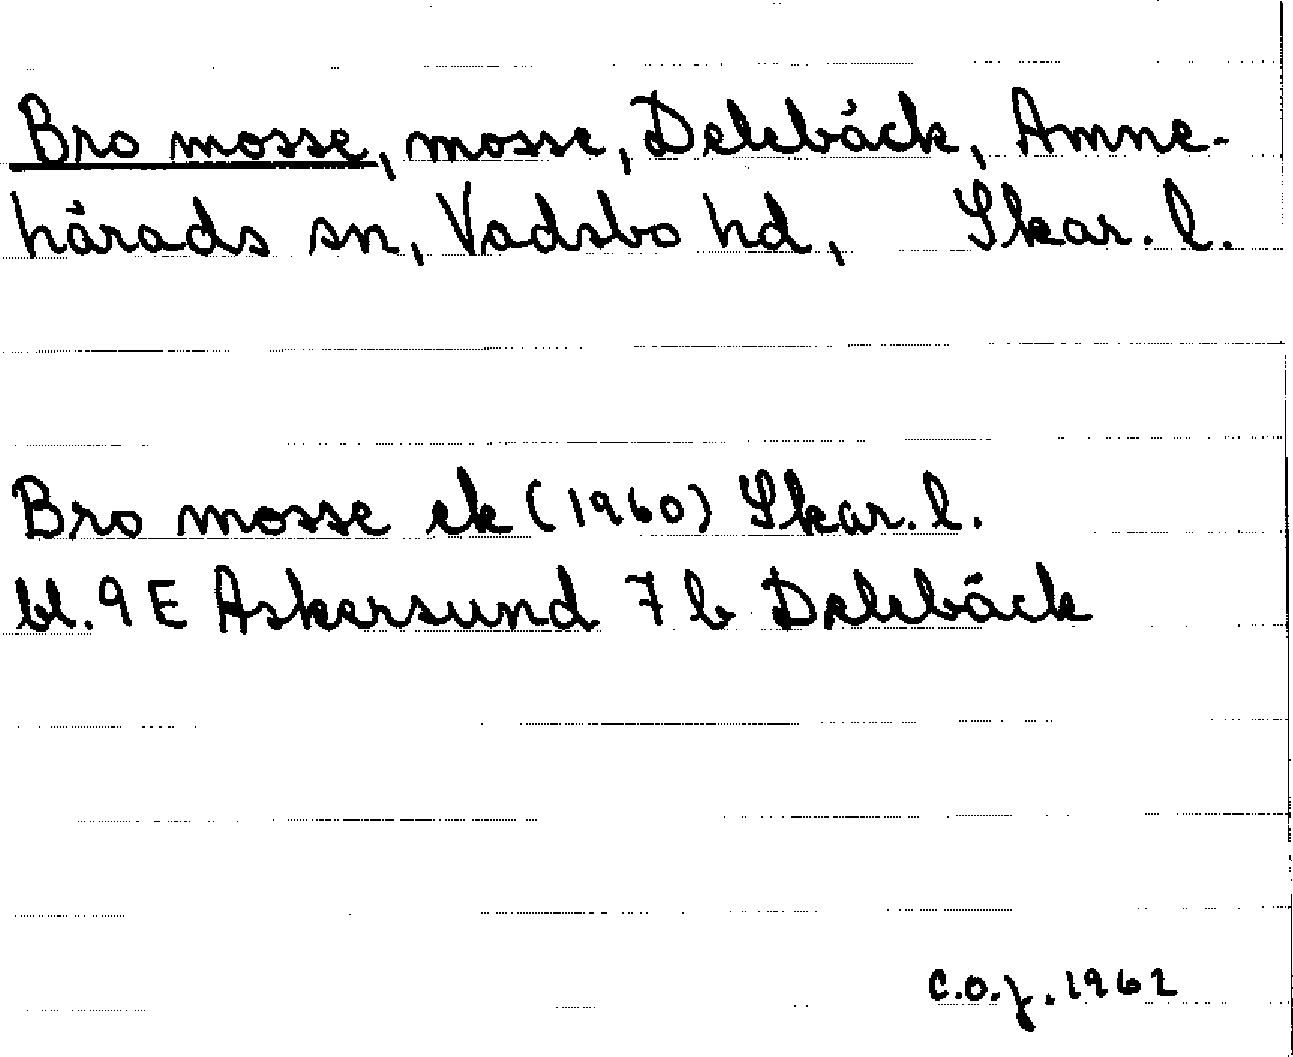 Bro mosse, mosse, Delebäck, Amne-
härads sn, Vadsbo hd, Skar. l.
Bro mosse ek (1960) Skar. l.
bl. 9 E Askersund 7 b Delebäck
C.O.J. 1962